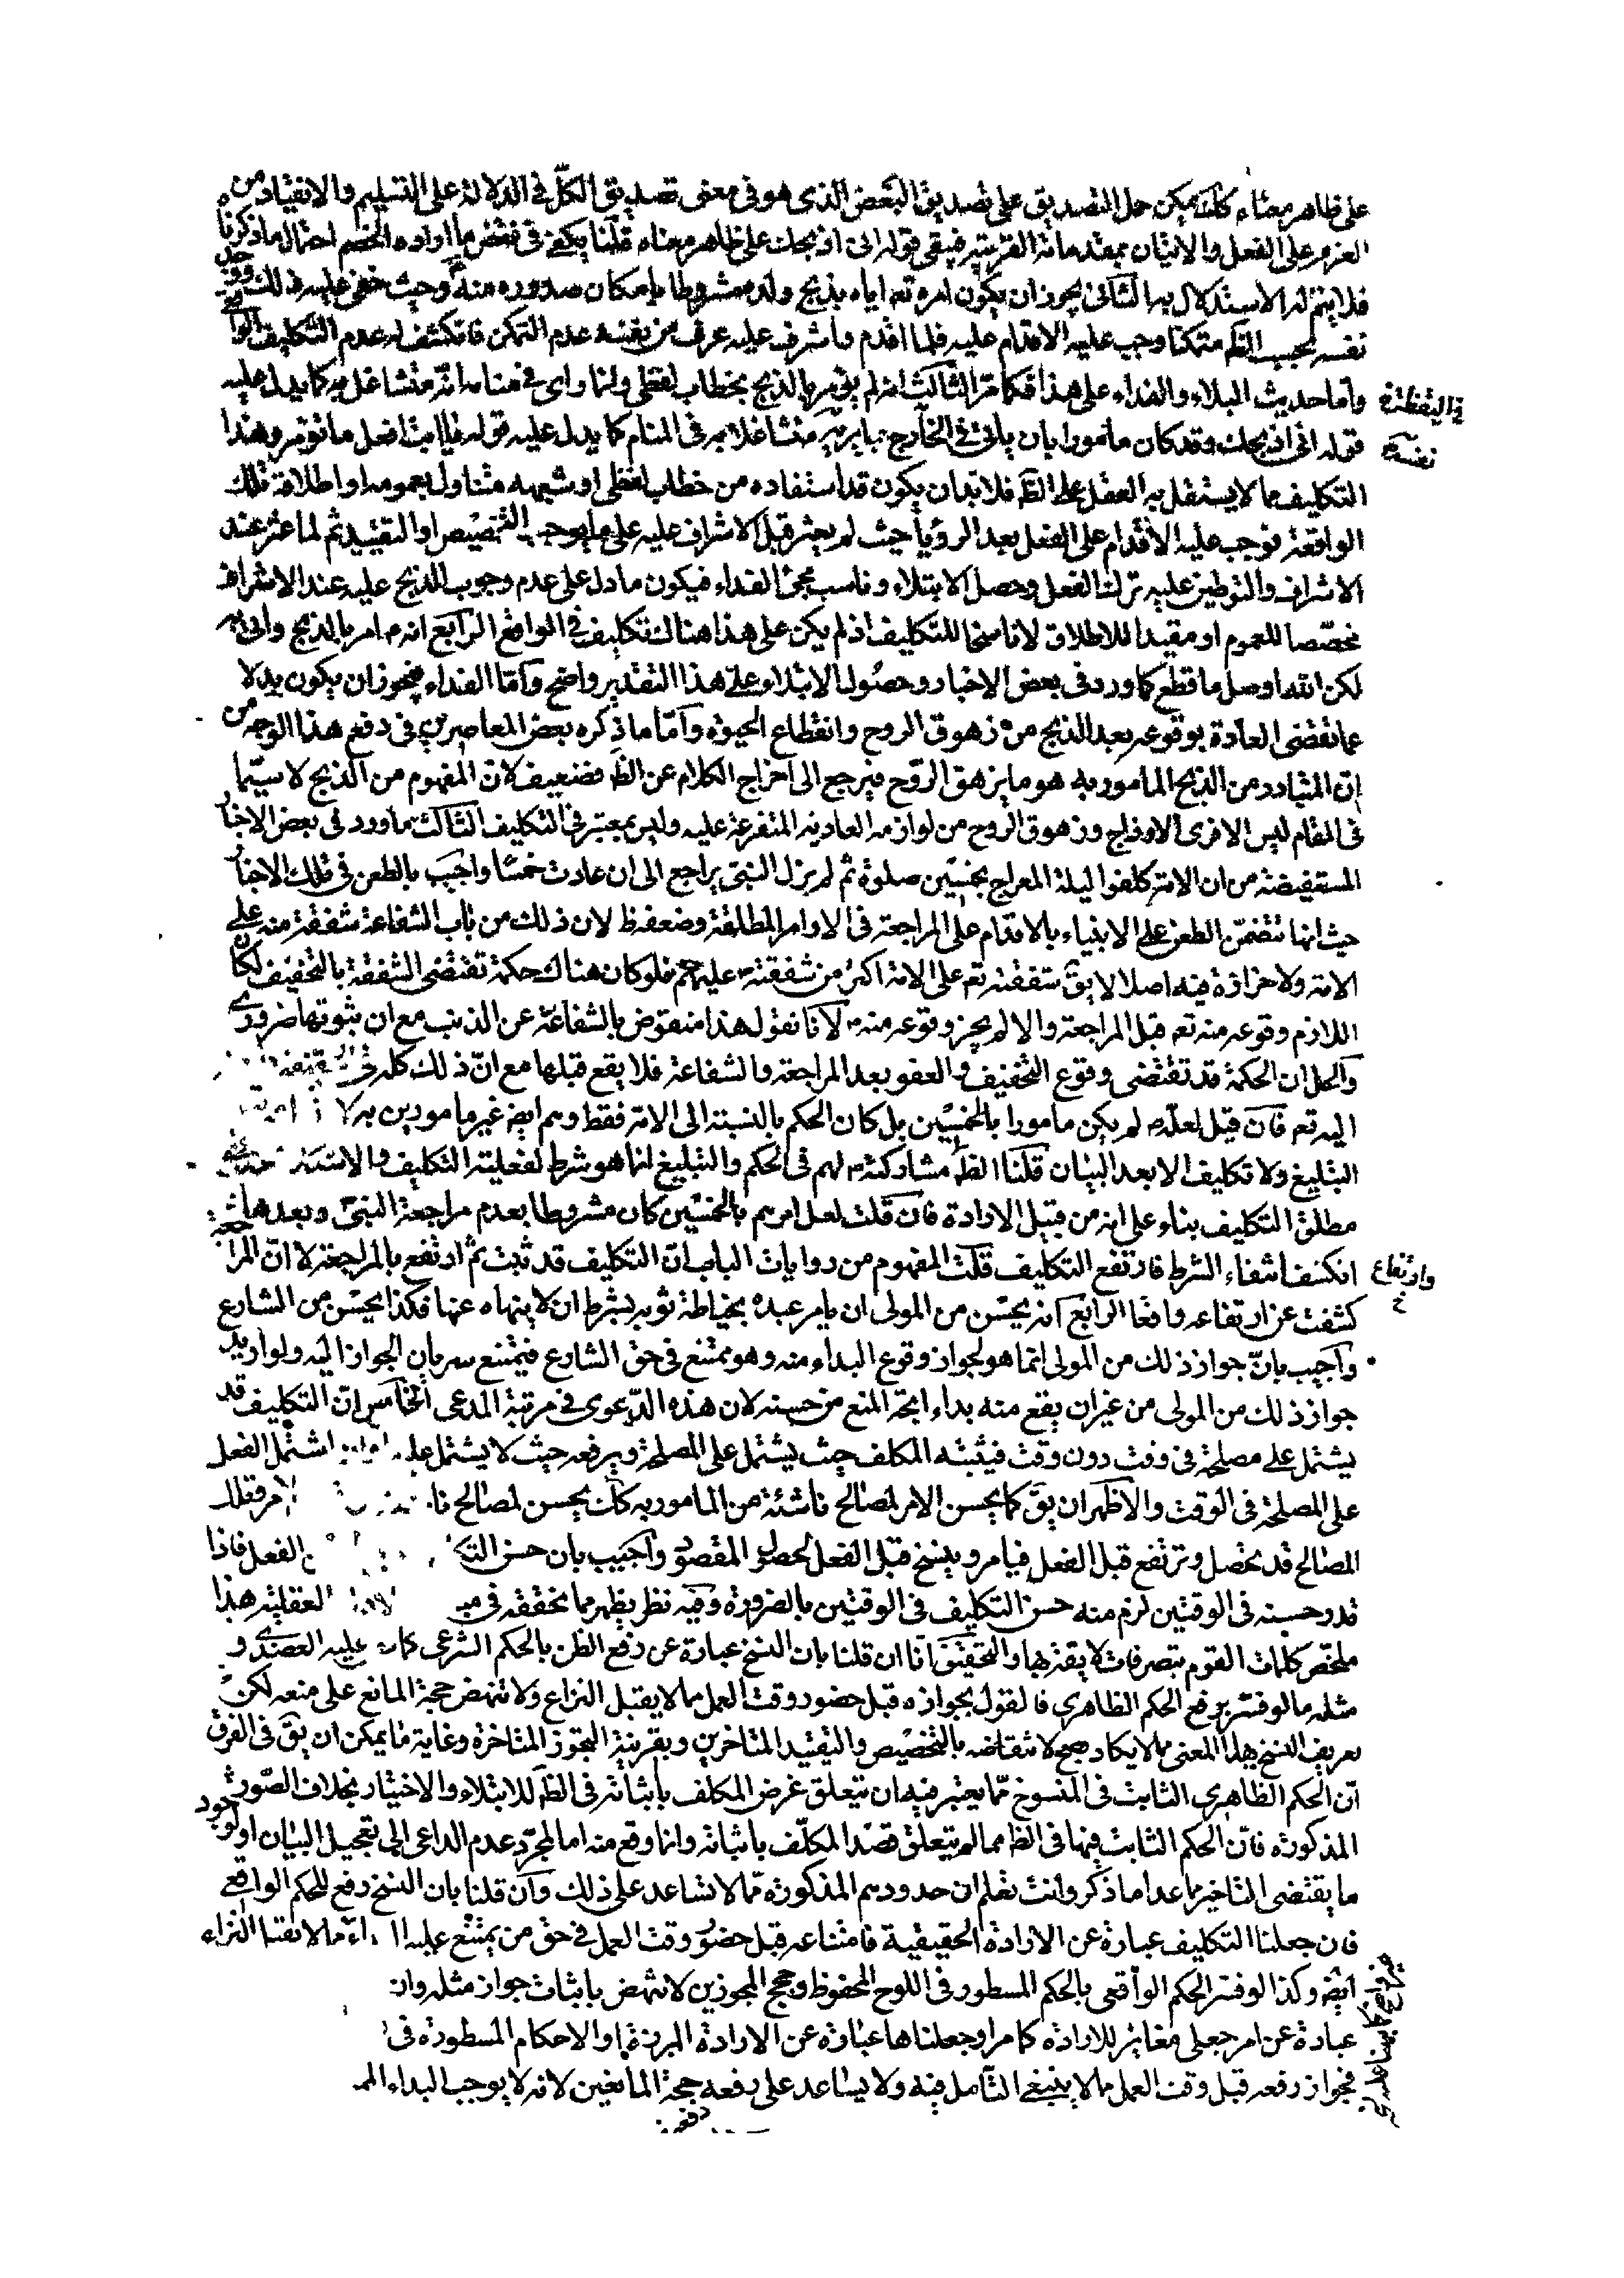 على ظاهر معناه كك يمكن حمل التصديق على تصديق البعض الذى هو فى معنى تصديق الكلّ فى الدلالة على التسليم والانقياد من
العزم على الفعل والاتيان بمقدماته القريبة فيبقى قوله انى اذبحك على ظاهر معناه قلنا يكفى فى نقض ما اراده الخصم احتمال ما ذكرناه
فلا يتم له الاستدلال به الثانى يجوز ان يكون امره تعم اياه بذبح ولده مشروطا بامكان صدوره منه وحيث خفى عليه ذلك ووجد
نفسه بحسب الظم متمكنا وجب عليه الاقدام عليه فلما اقدم واشرف عليه عرف من نفسه عدم التمكن فانكشف له عدم التكليف الواقعى
واما حديث البلاء والفداء على هذا فكما مرّ الثالث انه لم يؤمر بالذبح بخطاب لفظى وانما راى فى منامه انّه متشاغل به كما يدل عليه
فى اليقظة
قوله انى اذبحك وقد كان مامورا بان ياتى فى الخارج بما يرى متشاغلا به فى المنام كما يدل عليه قوله يا ابت افعل ما تؤمر وهذا
نفسه
التكليف مما لا يستقل به العقل على الظم فلا بد ان يكون قد استفاده من خطاب لفظى او شبهه متناول بعمومه او اطلاقه لتلك
الواقعة فوجب عليه الاقدام على الفعل بعد الرؤيا حيث لم يعثر قبل الاشراف عليه على ما يوجب التخصيص او التقييد ثم لما عثر عند
الاشراف والتوطين عليه ترك الفعل وحصل الابتلاء وناسب مجئ الفداء فيكون ما دل على عدم وجوب الذبح عليه عند الاشراف
مخصّصا للعموم او مقيدا للاطلاق لا ناسخا للتكليف اذ لم يكن على هذا هناك تكليف فى الواقع الرابع انه امر بالذبح واتى به
لكن الله اوصل ما قطع كما ورد فى بعض الاخبار وحصول الابتلاء على هذا التقدير واضح وامّا الفداء فيجوز ان يكون بدلا
عما تقتضى العادة بوقوعه بعد الذبح من زهوق الروح وانقطاع الحيوة وامّا ما ذكره بعض المعاصرين فى دفع هذا الوجه من
انّ المتبادر من الذبح المامور به هو ما يزهق الرّوح فيرجع الى اخراج الكلام عن الظم فضعيف لان المفهوم من الذبح لا سيّما
فى المقام ليس الا فرى الاوداج وزهوق الروح من لوازمه العادية المتفرعة عليه وليس بمعتبر فى التكليف الثالث ما ورد فى بعض الاخبار
المستفيضة من ان الامة كلفوا ليلة المعراج بخمسين صلوة ثم لم يزل النبى يراجع الى ان عادت خمسا واجيب بالطعن فى تلك الاخبار
حيث انها تتضمّن الطعن على الانبياء بالاقدام على المراجعة فى الاوامر المطلقة وضعفه ظ لان ذلك من باب الشفاعة شفقة منه على
الامة ولا حزازة فيه اصلا لا يق شفقته تعم على الامة اكثر من شفقته عليهم فلو كان هناك حكمة تقتضى الشفقة بالتخفيف لكان
اللازم وقوعه منه تعم قبل المراجعة والا لم يجز وقوعه منه لانا نقول هذا منقوض بالشفاعة عن الذنب مع ان ثبوتها ضرورى
والحل ان الحكمة قد تقتضى وقوع التخفيف والعفو بعد المراجعة والشفاعة فلا يقع قبلها مع انّ ذلك كله
اليه تعم فان قيل لعله لم يكن مامورا بالخمسين بل كان الحكم بالنسبة الى الامة فقط وهم ايض غير مامورين به
التبليغ ولا تكليف الا بعد البيان قلنا الظم مشاركته لهم فى الحكم والتبليغ انما هو شرط لفعلية التكليف
مطلق التكليف بناء على انه من قبيل الارادة فان قلت لعل امرهم بالخمسين كان مشروطا بعدم مراجعة النبى وبعدها
انكشف انتفاء الشرط فارتفع التكليف قلت المفهوم من روايات الباب ان التكليف قد ثبت ثم ارتفع بالمراجعة لا انّ المراجعة
وارتفاع
كشفت عن ارتفاعه واقعا الرابع انه يحسن من المولى ان يامر عبده بخياطة ثوبه بشرط ان لا ينهاه عنها فكذا يحسن من الشارع
واجيب بانّ جواز ذلك من المولى انما هو لجواز وقوع البداء منه وهو ممتنع فى حق الشارع فيمتنع سريان الجواز اليه ولو اريد
جواز ذلك من المولى من غير ان يقع منه بداء اتجه المنع من حسنه لان هذه الدّعوى فى مرتبة المدعى الخامس انّ التكليف قد
يشتمل على مصلحة فى وقت دون وقت فيثبته المكلف حيث يشتمل على المصلحة ويرفعه حيث لا يشتمل عليها اشتمل الفعل
على المصلحة فى الوقت والاظهر ان يق كما يحسن الامر لمصالح ناشئة من المامور به كك يحسن لمصالح الامر وتلك
المصالح قد تحصل وترتفع قبل الفعل فيامر وينسخ قبل الفعل لحصول المقصود واجيب بان حسن الفعل فاذا
قدر حسنه فى الوقتين لزم منه حسن التكليف فى الوقتين بالضرورة وفيه نظر يظهر مما نحققه فى العقلية هذا
ملخص كلمات القوم بتصرفات لا يقترنها والتحقيق انّا ان قلنا بان النسخ عبارة عن رفع الظن بالحكم الشرعى كما عليه العضدى و
مثله ما لو فسر برفع الحكم الظاهرى فالقول بجوازه قبل حضور وقت العمل مما لا يقبل النزاع ولا تنهض حجة المانع على منعه لكن
تعريف النسخ بهذا المعنى مما لا يكاد يصح لانتقاضه بالتخصيص والتقييد المتاخرين وبقرينة التجوز المتاخرة وغاية ما يمكن ان يق فى الفرق
انّ الحكم الظاهرى الثابت فى المنسوخ ممّا يعتبر فيه ان يتعلق غرض المكلف باثباته فى الظم للابتلاء والاختبار بخلاف الصّور
المذكورة فان الحكم الثابت فيها فى الظم مما لم يتعلق قصد المكلّف باثباته وانما وقع منه اما لمجرد عدم الداعى الى تعجيل البيان او لوجود
ما يقتضى التاخير مما عدا ما ذكر وانت تعلم ان حدودهم المذكورة ممّا لا تساعد على ذلك وان قلنا بان النسخ رفع للحكم الواقعى
فان جعلنا التكليف عبارة عن الارادة الحقيقية فامتناعه قبل حضور وقت العمل فى حق من يمتنع عليه البداء مما لا يقبل النزاع
ايض وكذا لو فسر الحكم الواقعى بالحكم المسطور فى اللوح المحفوظ وحجج المجوزين لا تنهض باثبات جواز مثله وان
عبارة عن امر جعلى مغاير للارادة كما مر او جعلناها عبارة عن الارادة المبرزة او الاحكام المسطورة فى
فجواز رفعه قبل وقت العمل مما لا ينبغى التامل فيه ولا يساعد على رفعه حجة المانعين لانه لا يوجب البداء